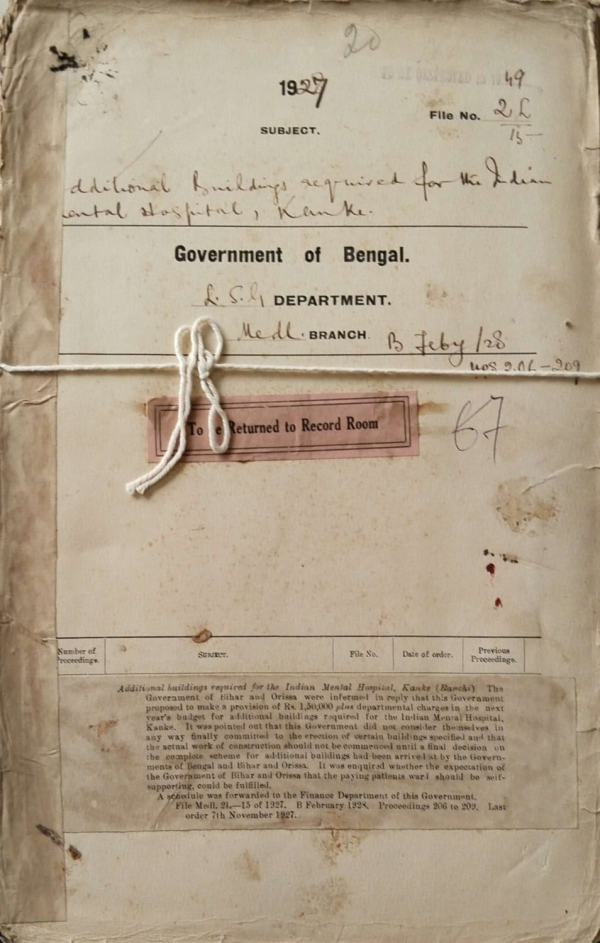 20
1927
49
File No. 2L
15
SUBJECT.
dditional Buildings required for the Indian
ental Hospital, Kanke.
Government of Bengal.
L. S. G. DEPARTMENT.
Medl. BRANCH B Feby /28
Nos 206-209
To be Returned to Record Room
67
Number of Proceedings.
SUBJECT.
File No.
Date of order.
Previous Proceedings.
Additional buildings required for the Indian Mental Hospital, Kanke (Ranchi) The
Government of Bihar and Orissa were informed in reply that this Government
proposed to make a provision of Rs. 1,50,000 plus departmental charges in the next
year's budget for additional buildings required for the Indian Mental Hospital,
Kanke. It was pointed out that this Government did not consider themselves in
any way finally committed to the erection of certain buildings specified and that
the actual work of construction should not be commenced until a final decision on
the complete scheme for additional buildings had been arrived at by the Govern-
ments of Bengal and Bihar and Orissa. It was enquired whether the expectation of
the Government of Bihar and Orissa that the paying patients ward should be self-
supporting, could be fulfilled.
A schedule was forwarded to the Finance Department of this Government.
File Medl. 2L—15 of 1927. B February 1928. Proceedings 206 to 209. Last
order 7th November 1927.